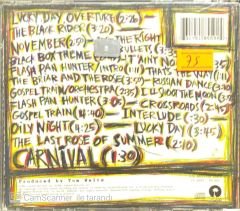 LUCKY DAY OVERTURE (2:26)
THE BLACK RIDER (3:20)
NOVEMBER (2:50) THE RIGHT
BULLETS (3:35)
BLACK BOX THEME 'T'AIN'T NO
FLASH PAN HUNTER/INTRO THAT'S THE WAY (1:11)
THE BRIAR AND THE ROSE (3:50) RUSSIAN DANCE (3:10)
GOSPEL TRAIN/ORCHESTRA (2:35) I'LL SHOOT THE MOON
FLASH PAN HUNTER (3:05) CROSSROADS (2:45)
GOSPEL TRAIN (4:40) INTERLUDE (:30)
OILY NIGHT (4:25) LUCKY DAY (3:45)
THE LAST ROSE OF SUMMER (2:10)
CARNIVAL (1:30)
Produced by Tom Waits
CamScanner ile tarandı